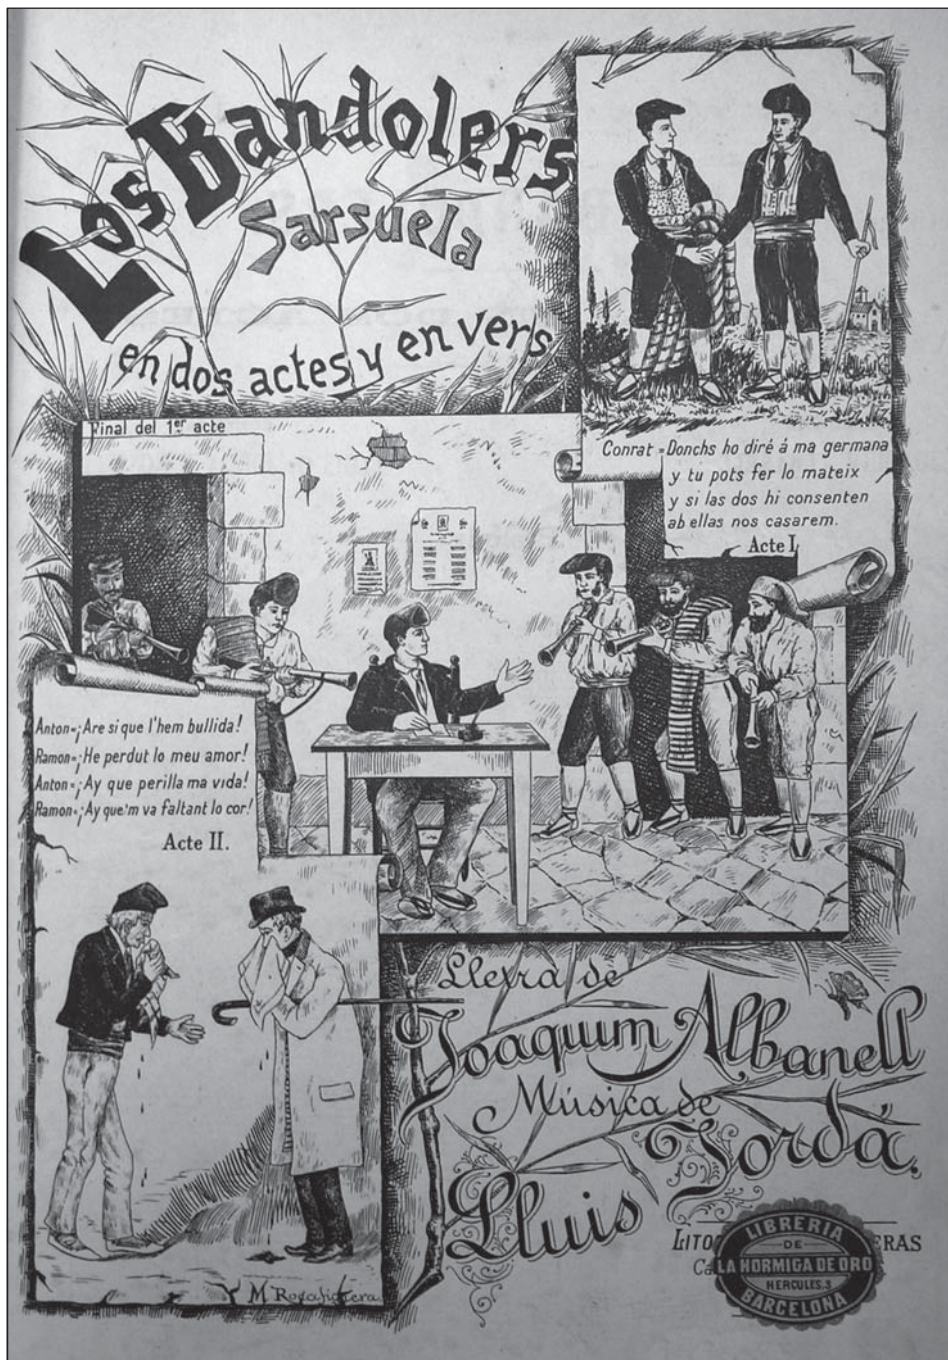 Los Bandolers
Sarsuela
en dos actes y en vers
Conrat = Donchs ho diré á ma germana
y tu pots fer lo mateix
y si las dos hi consenten
ab ellas nos casarem.
Acte I
Final del 1er acte
Anton=¡Are si que l'hem bullida!
Ramon=¡He perdut lo meu amor!
Anton=¡Ay que perilla ma vida!
Ramon=¡Ay que'm va faltant lo cor!
Acte II.
Lletra de
Joaquim Albanell
Música de
Lluis Jordá.
M. Rocafiguera
LIBRERIA
DE
LA HORMIGA DE ORO
HERCULES, 3
BARCELONA